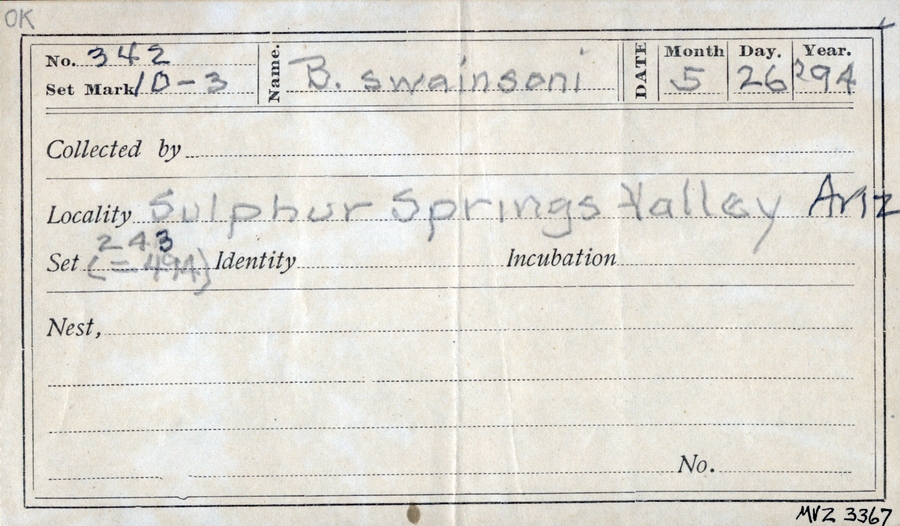 OK
No. 342 Name. B. swainsoni DATE Month Day. Year.
Set Mark 10-3 5 26 294
Collected by
Locality Sulphur Springs Valley Ariz
243
Set (=494) Identity Incubation
Nest,
No.
MVZ 3367